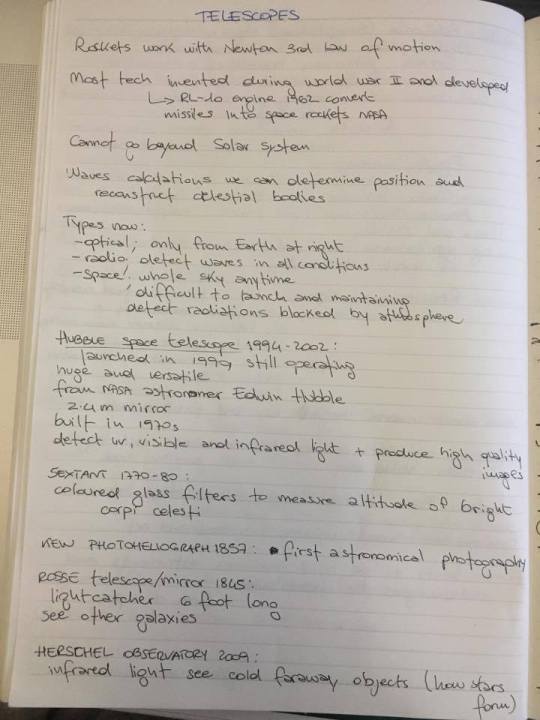 TELESCOPES
Rockets work with Newton 3rd law of motion
Most tech invented during world war II and developed
↳ RL-10 engine 1962 convert
missiles into space rockets NASA
Cannot go beyond Solar System
Waves calculations we can determine position and
reconstruct celestial bodies
Types now:
-optical; only from Earth at night
-radio; detect waves in all conditions
-space! whole sky anytime
! difficult to launch and maintaining
detect radiations blocked by atmosphere
HUBBLE space telescope 1994-2002:
launched in 1990, still operating
huge and versatile
from NASA astronomer Edwin Hubble
2.4m mirror
built in 1970s
detect uv, visible and infrared light + produce high quality
images
SEXTANT 1770-80:
coloured glass filters to measure altitude of bright
corpi celesti
KEW PHOTOHELIOGRAPH 1857: first astronomical photography
ROSSE telescope/mirror 1845:
lightcatcher 6 foot long
see other galaxies
HERSCHEL OBSERVATORY 2009:
infrared light see cold faraway objects (how stars
form)